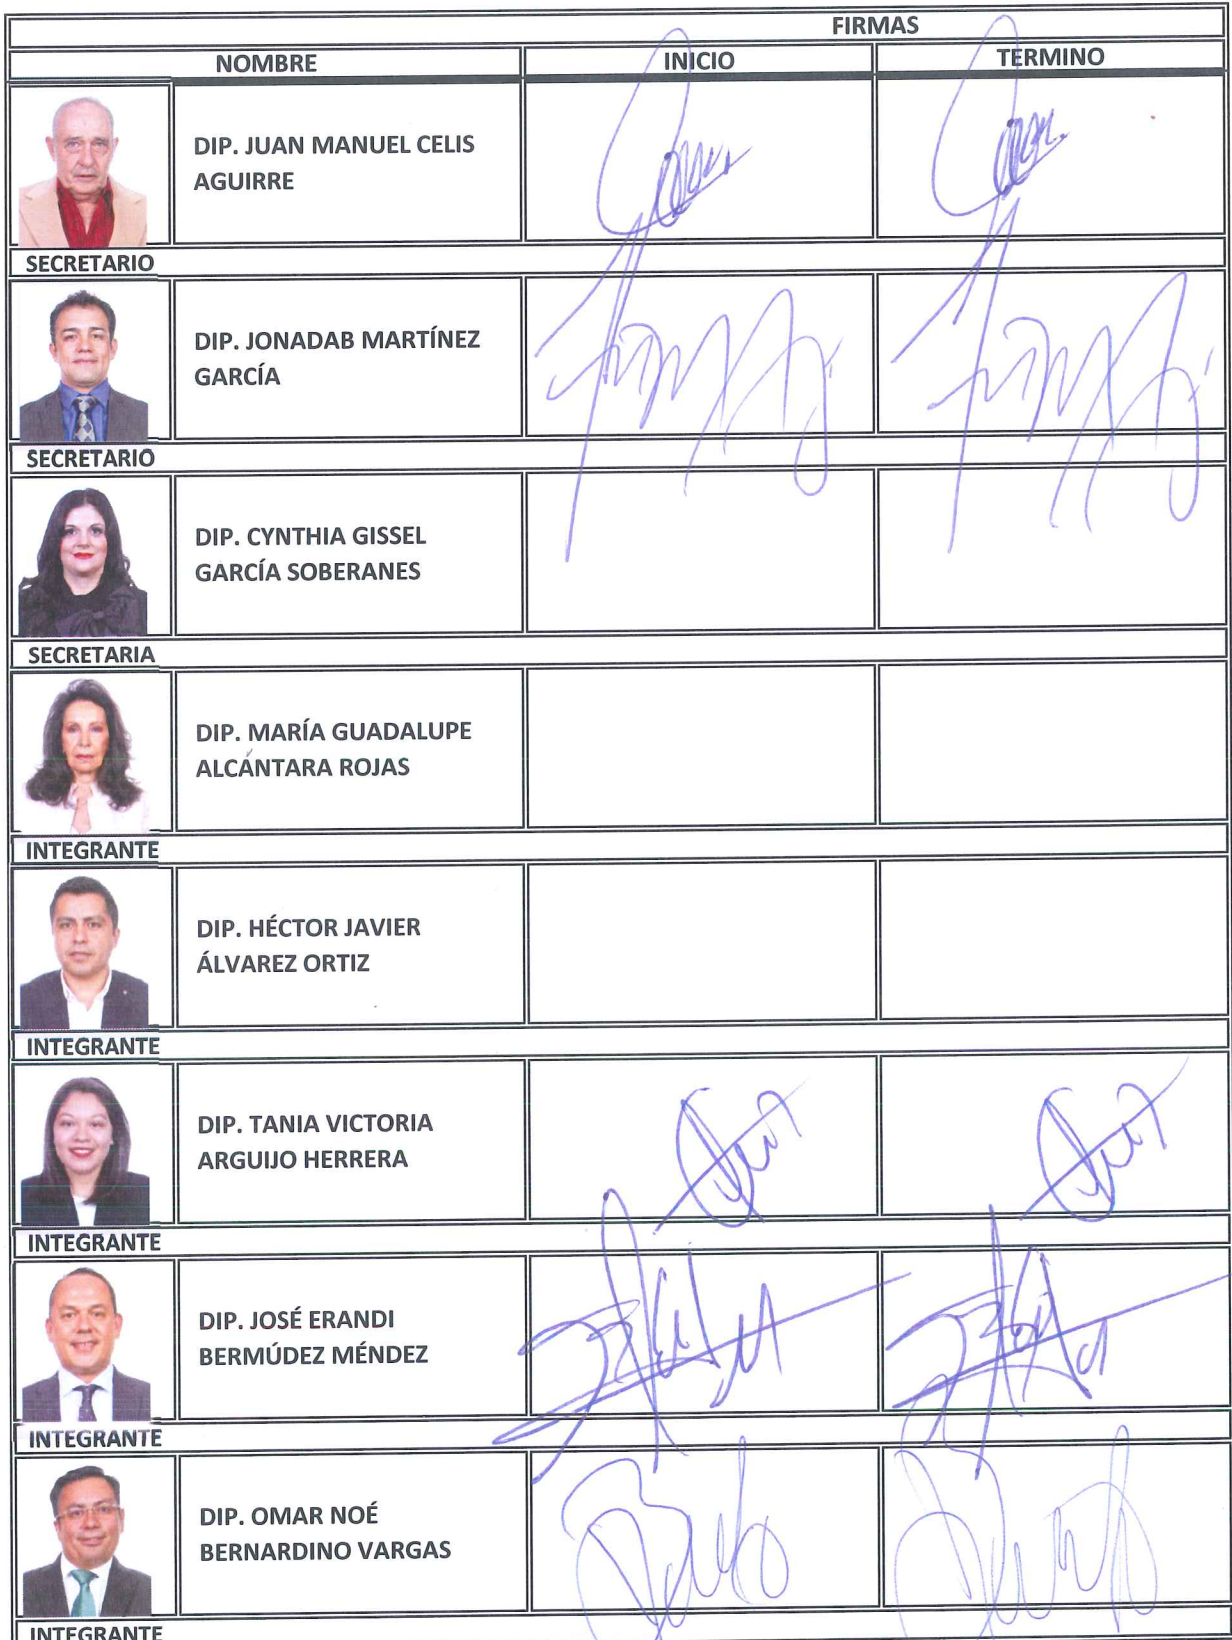 FIRMAS
NOMBRE INICIO TERMINO
DIP. JUAN MANUEL CELIS
AGUIRRE
SECRETARIO
DIP. JONADAB MARTÍNEZ
GARCÍA
SECRETARIO
DIP. CYNTHIA GISSEL
GARCÍA SOBERANES
SECRETARIA
DIP. MARÍA GUADALUPE
ALCÁNTARA ROJAS
INTEGRANTE
DIP. HÉCTOR JAVIER
ÁLVAREZ ORTIZ
INTEGRANTE
DIP. TANIA VICTORIA
ARGUIJO HERRERA
INTEGRANTE
DIP. JOSÉ ERANDI
BERMÚDEZ MÉNDEZ
INTEGRANTE
DIP. OMAR NOÉ
BERNARDINO VARGAS
INTEGRANTE